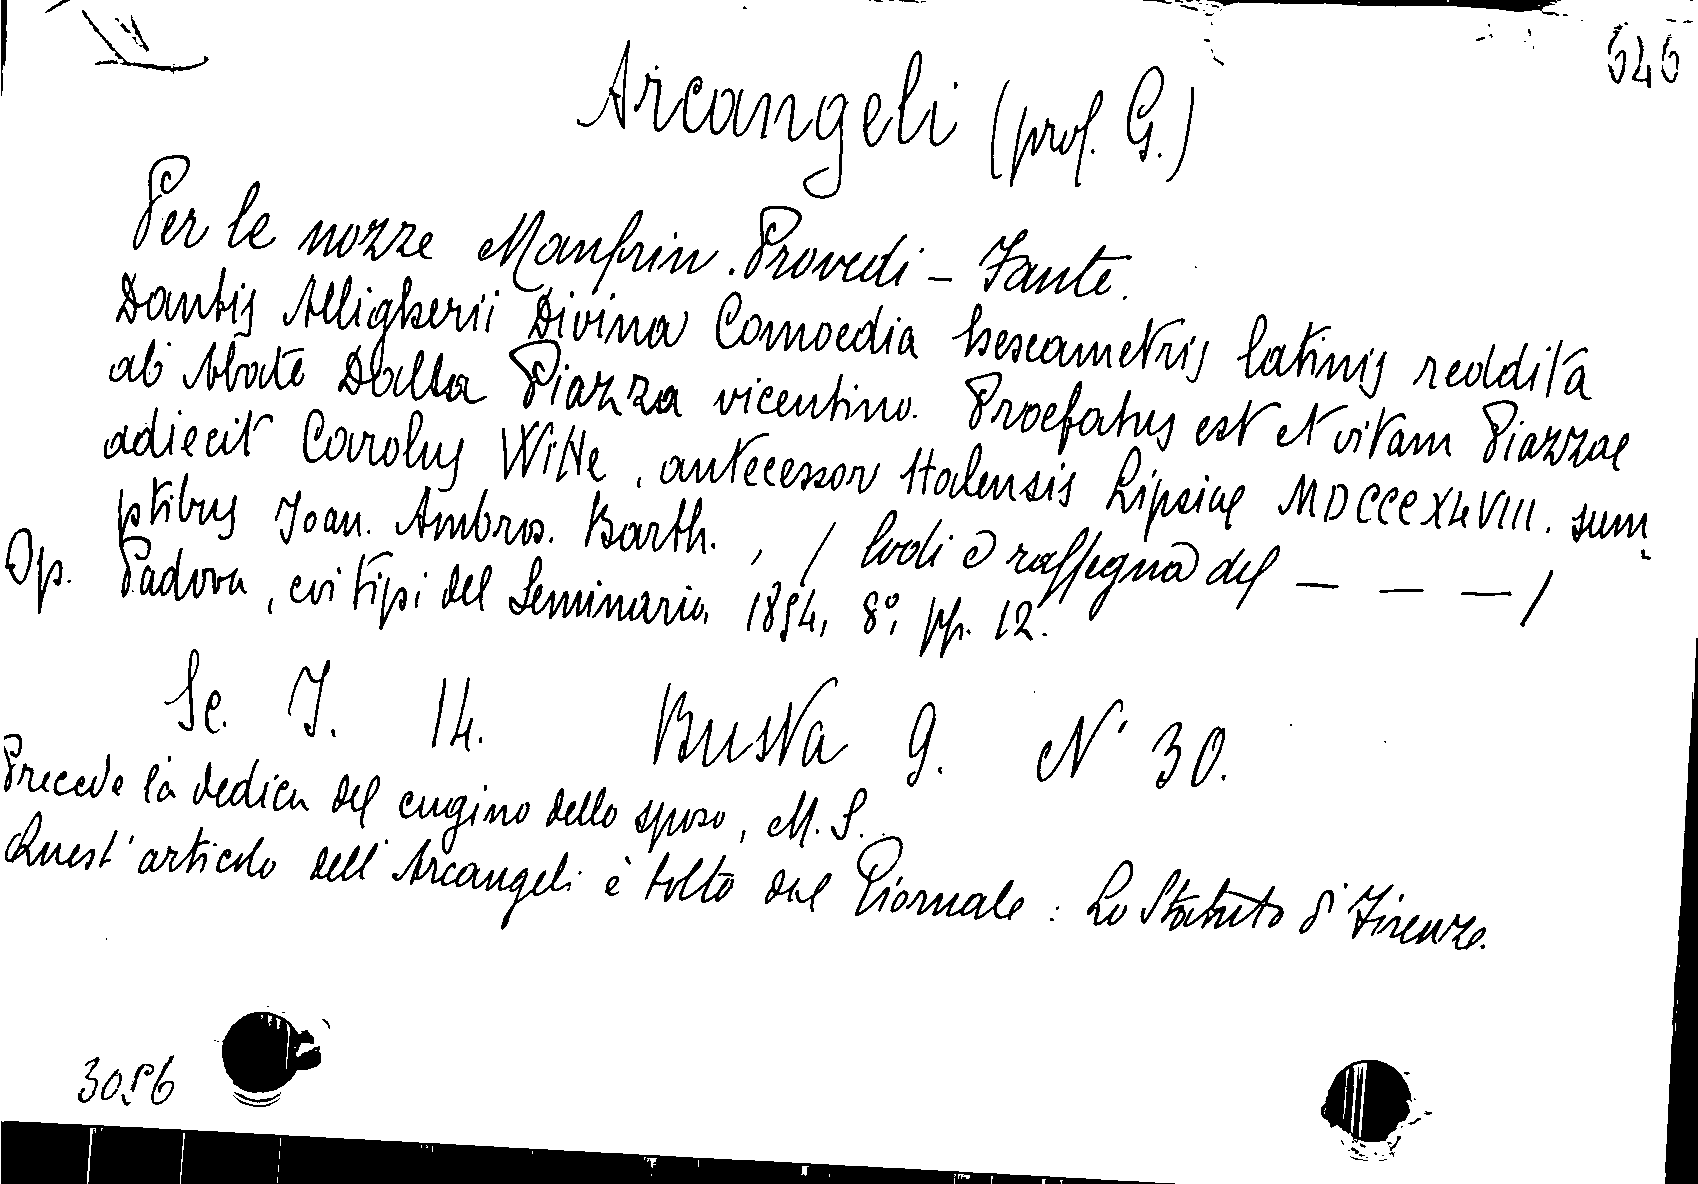 646
Arcangeli (prof. G.)
Per le nozze Manfrin. Provedi - Fante.
Dantis Alligherii Divina Comoedia hexametris latinis reddita
ab Abate Dalla Piazza vicentino. Praefatus est et vitam Piazzae
adiecit Carolus Witte, antecessor Halensis Lipsiae MDCCCXLVIII. sum-
ptibus Joan. Ambros. Barth. , / lodi e rassegna del _ _ _ /
Op. Padova, coi tipi del Seminario, 1854, 8°, pp. 12.
Se. I. 14. Busta 9. N° 30.
Precede la dedica del cugino dello sposo, M. S.
Quest'articolo dell'Arcangeli è tolto dal Giornale: Lo Statuto di Firenze.
3056